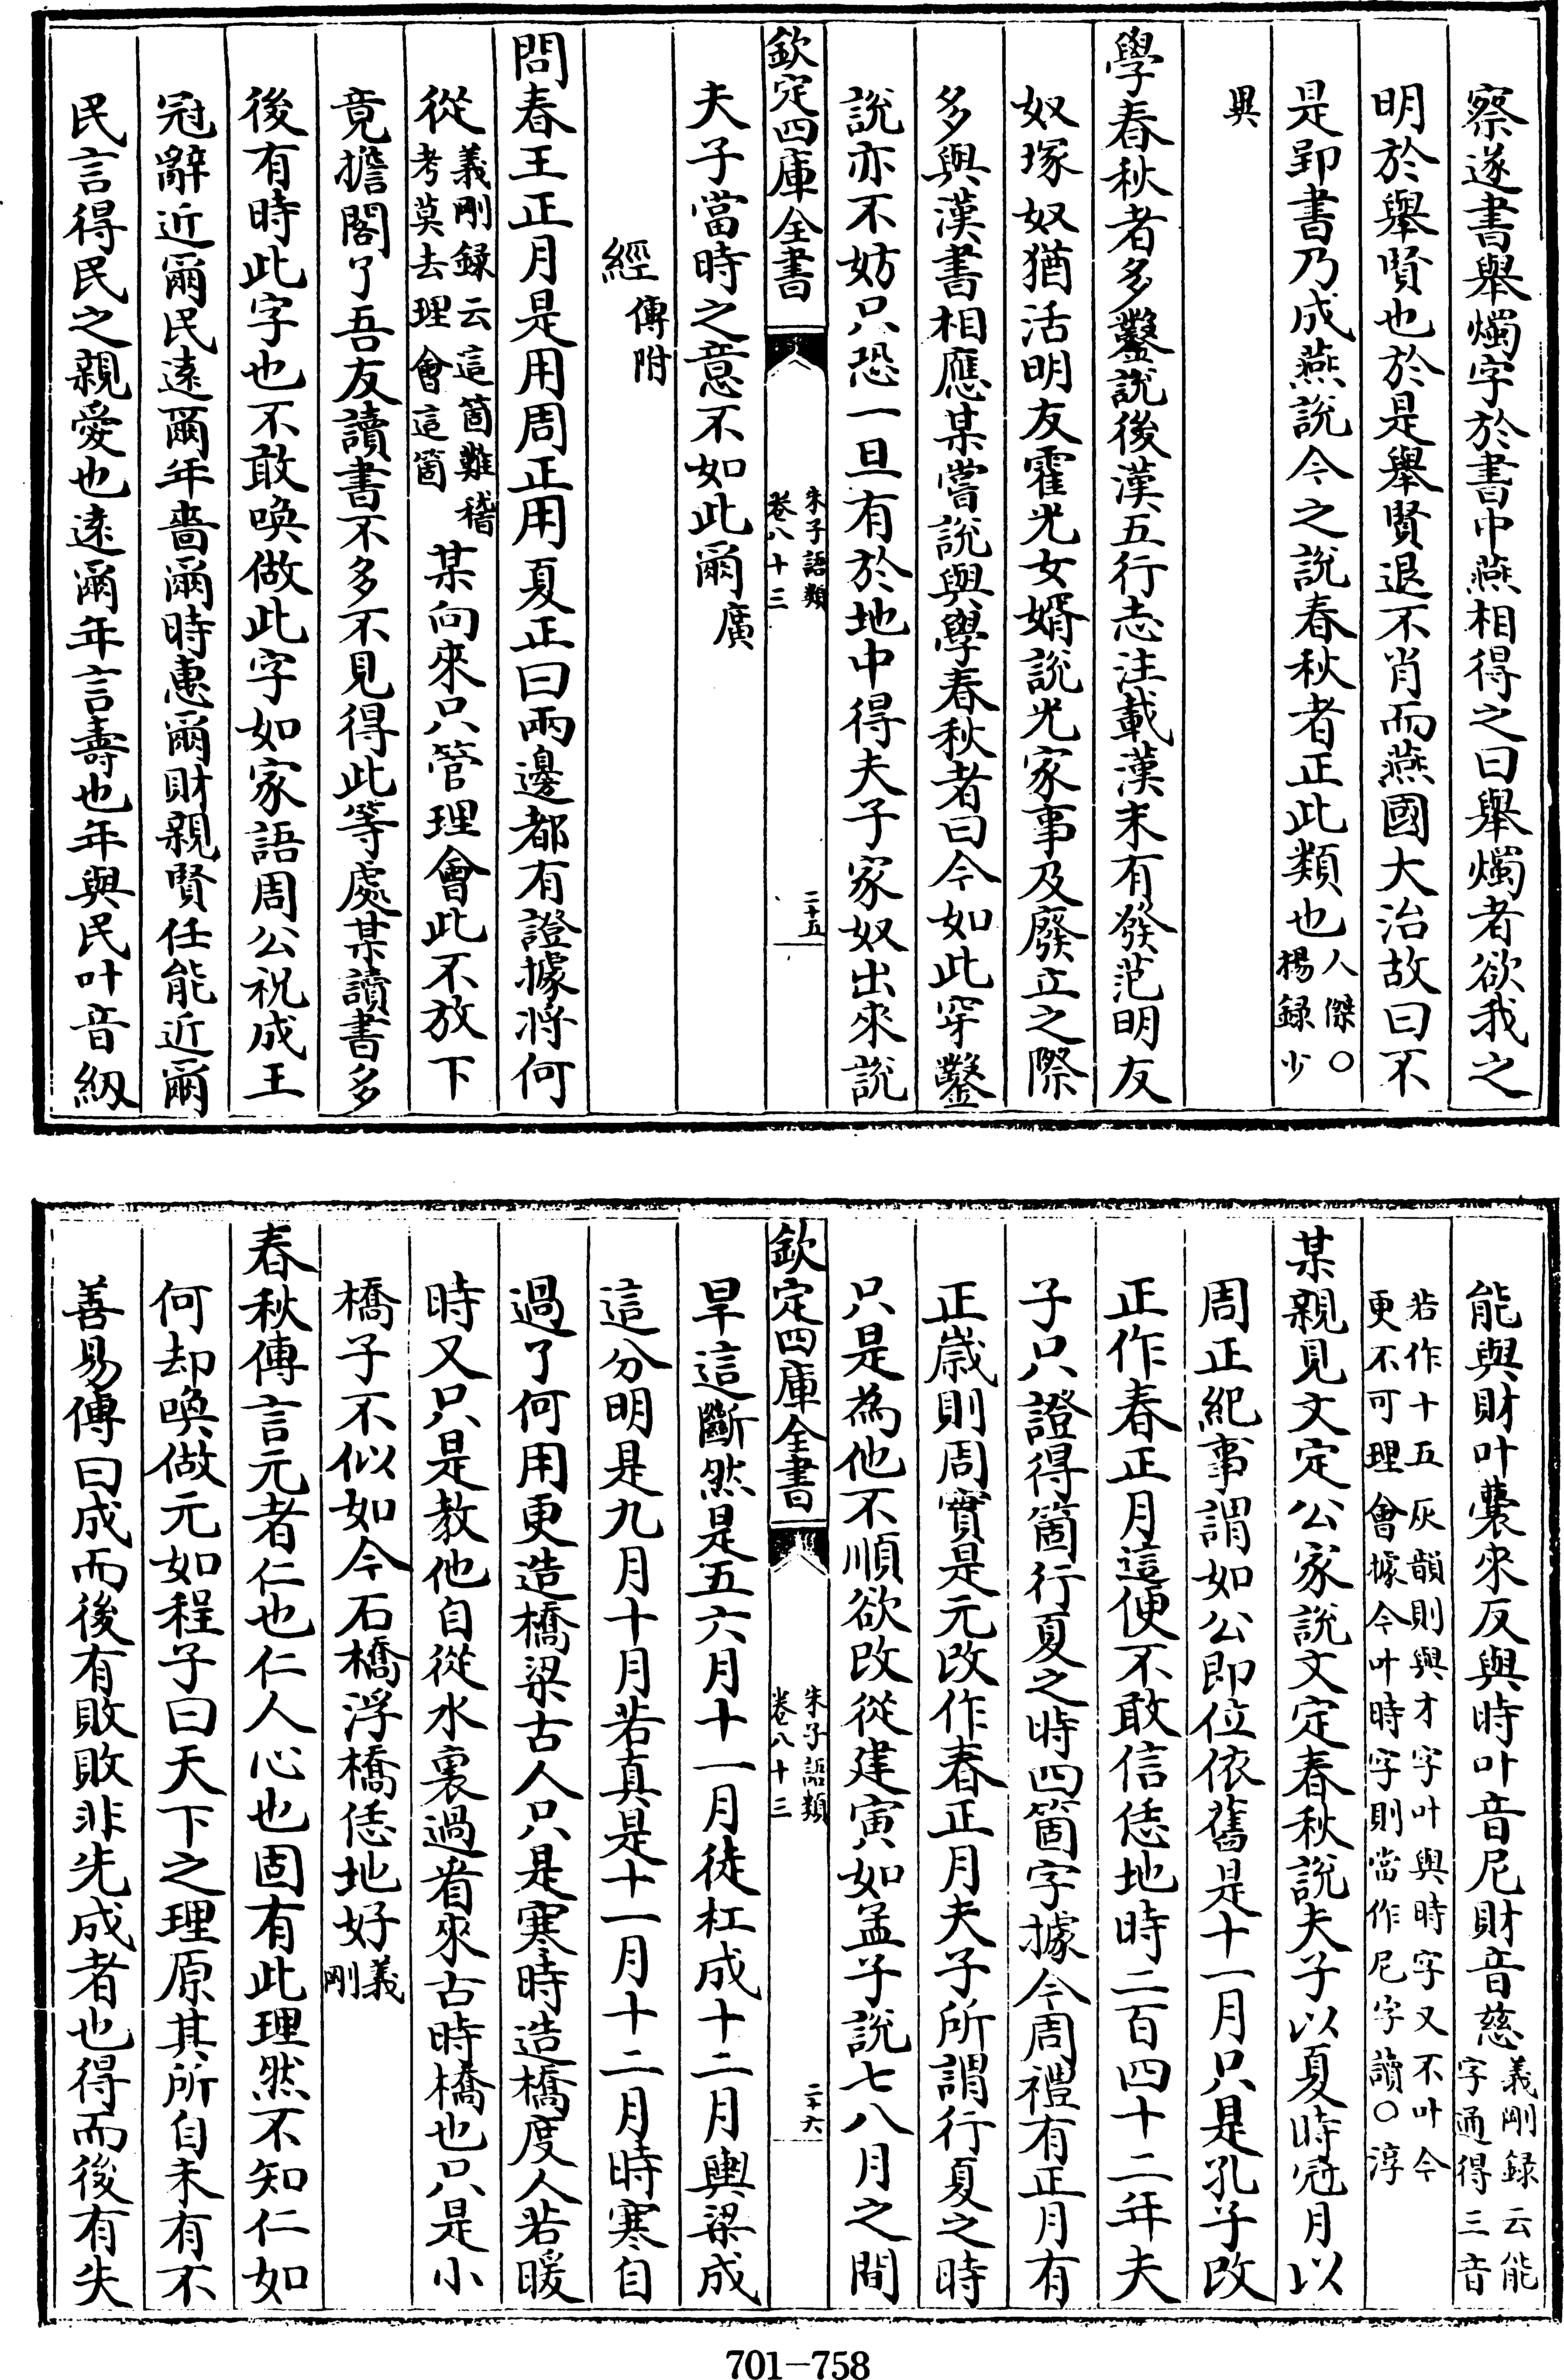 察遂書舉燭字於書中燕相得之曰舉燭者欲我之
明於舉賢也於是舉賢退不肖而燕國大治故曰不
是郢書乃成燕說今之說春秋者正此類也人傑○楊録少
異
學春秋者多鑿說後漢五行志注載漢末有發范明友
奴塚奴猶活明友霍光女婿說光家事及廢立之際
多與漢書相應某嘗說與學春秋者曰今如此穿鑿
說亦不妨只恐一旦有於地中得夫子家奴出來說
欽定四庫全書 朱子語類卷八十三 二十五
夫子當時之意不如此爾廣
經傳附
問春王正月是用周正用夏正曰兩邊都有證據將何
從義剛録云這箇難稽考莫去理會這箇某向來只管理會此不放下
竟擔閣了吾友讀書不多不見得此等處某讀書多
後有時此字也不敢喚做此字如家語周公祝成王
冠辭近爾民遠爾年嗇爾時惠爾財親賢任能近爾
民言得民之親愛也遠爾年言壽也年與民叶音紉
能與財叶囊來反與時叶音尼財音慈義剛録云能字通得三音
若作十五灰韻則與才字叶與時字又不叶今更不可理會據今叶時字則當作尼字讀○淳
某親見文定公家說文定春秋說夫子以夏時冠月以
周正紀事謂如公即位依舊是十一月只是孔子改
正作春正月這便不敢信恁地時二百四十二年夫
子只證得箇行夏之時四箇字據今周禮有正月有
正嵗則周實是元改作春正月夫子所謂行夏之時
只是為他不順欲改從建寅如孟子說七八月之間
欽定四庫全書 朱子語類卷八十三 二十六
旱這斷然是五六月十一月徒杠成十二月輿梁成
這分明是九月十月若真是十一月十二月時寒自
過了何用更造橋梁古人只是寒時造橋度人若暖
時又只是教他自從水裏過看來古時橋也只是小
橋子不似如今石橋浮橋恁地好義剛
春秋傳言元者仁也仁人心也固有此理然不知仁如
何却喚做元如程子曰天下之理原其所自未有不
善易傳曰成而後有敗敗非先成者也得而後有失
701－758